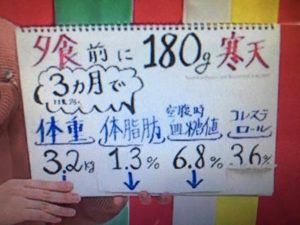 夕食前に180g寒天
3カ月で
体重 体脂肪 空腹時血糖値 コレステロール
3.2kg 1.3% 6.8% 3.6%
↓ ↓ ↓